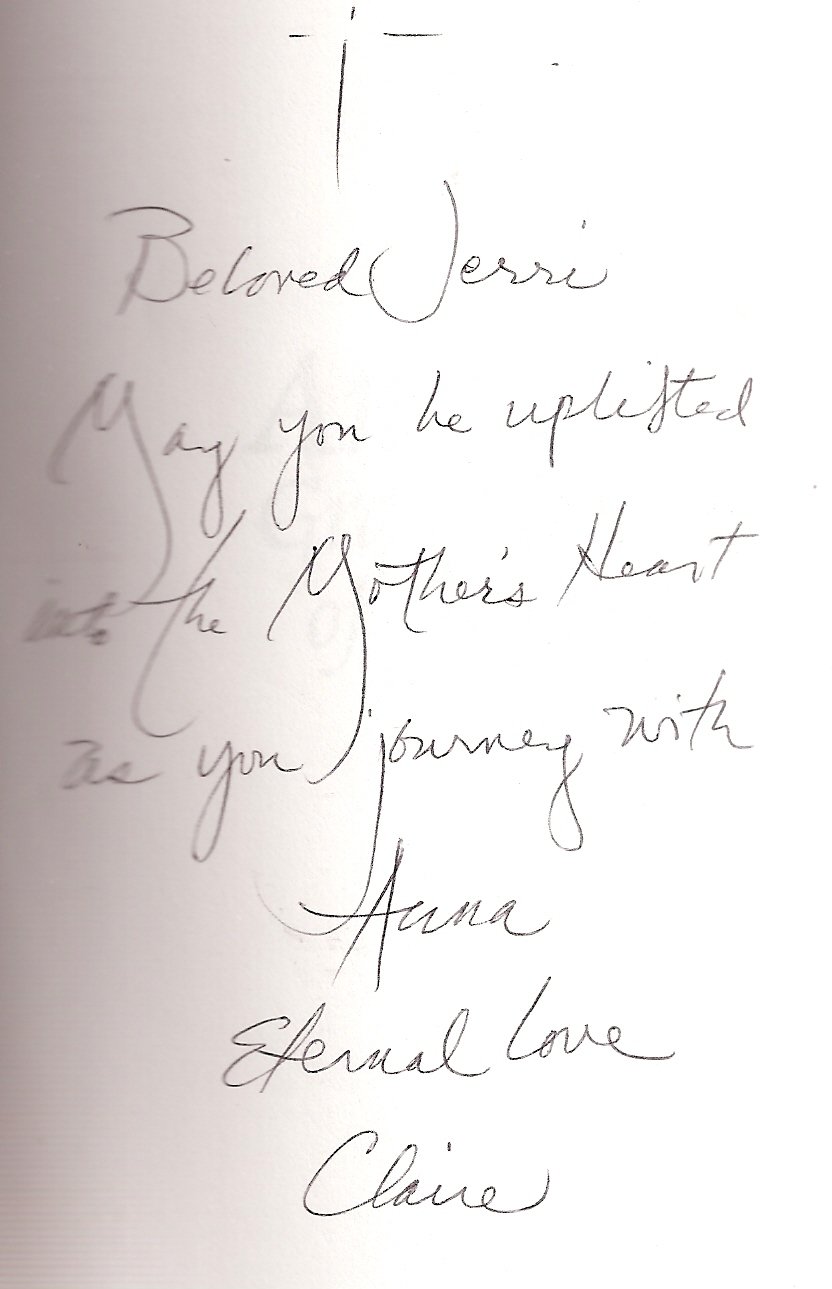 Beloved Jerri
May you be uplifted
into the Mother's Heart
as you journey with
Anna
Eternal Love
Claire